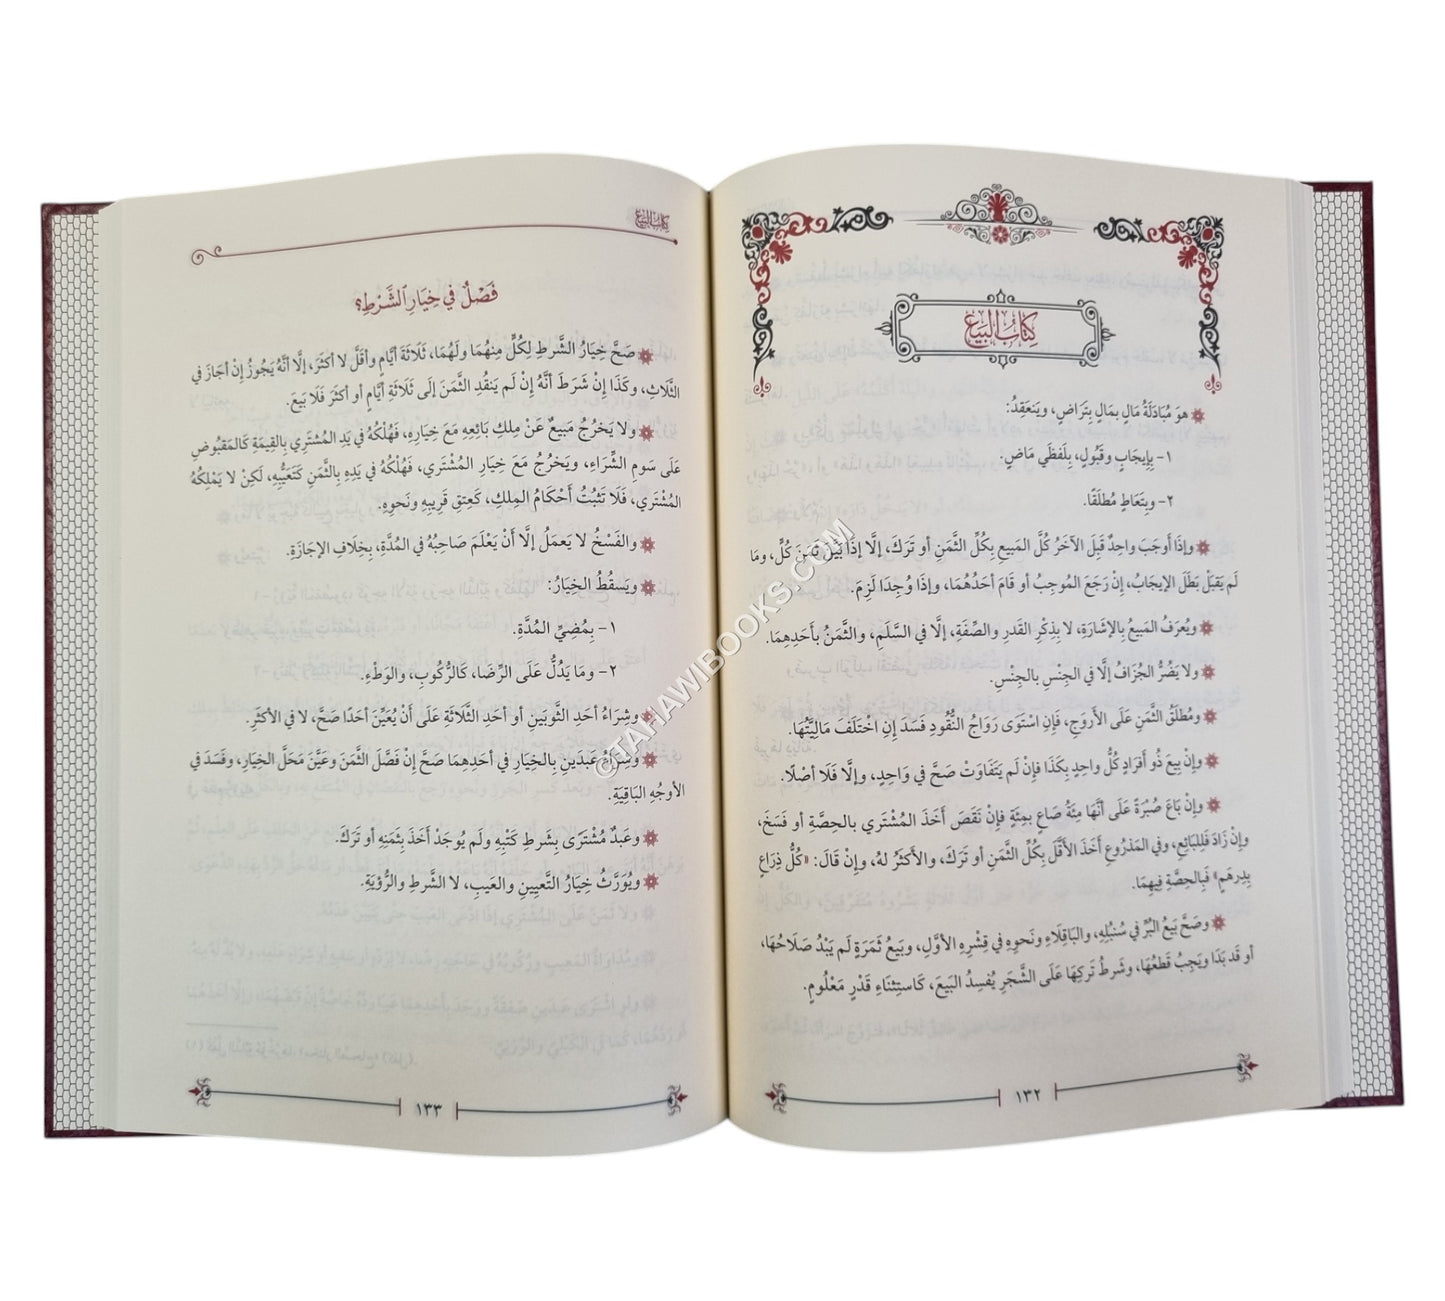 كِتَابُ البَيْعِ
هوَ مُبَادَلَةُ مَالٍ بمَالٍ بِتَرَاضٍ، ويَنعَقِدُ:
١- بِإِيجَابٍ وقَبُولٍ، بِلَفظَي مَاضٍ.
٢- وبِتَعَاطٍ مُطلَقًا.
وإذَا أَوجَبَ واحِدٌ قَبِلَ الآخَرُ كُلَّ المَبيعِ بِكُلِّ الثَّمَنِ أو تَرَكَ، إلَّا إذَا بَيَّنَ ثَمَنَ كُلٍّ، ومَا
لَم يَقبَلْ بَطَلَ الإيجَابُ، إنْ رَجَعَ المُوجِبُ أو قَامَ أحَدُهُمَا، وإذَا وُجِدَا لَزِمَ.
ويُعرَفُ المَبيعُ بِالإشَارَةِ، لا بِذِكْرِ القَدرِ والصِّفَةِ، إلَّا في السَّلَمِ، والثَّمَنُ بأَحَدِهِمَا.
ولا يَضُرُّ الجُزَافُ إلَّا في الجِنْسِ بالجِنْسِ.
ومُطلَقُ الثَّمَنِ عَلَى الأَروَجِ، فَإنِ اسْتَوَى رَوَاجُ النُّقُودِ فَسَدَ إنِ اخْتَلَفَ مَالِيَّتُهَا.
وإنْ بِيعَ ذُو أَفرَادٍ كُلُّ واحِدٍ بِكَذَا فإنْ لَم يَتَفَاوَتْ صَحَّ في وَاحِدٍ، وإلَّا فَلَا أصْلًا.
وإنْ بَاعَ صُبْرَةً عَلَى أنَّهَا مِئَةُ صَاعٍ بِمِئَةٍ فإنْ نَقَصَ أَخَذَ المُشْتَري بالحِصَّةِ أو فَسَخَ،
وإنْ زَادَ فَلِلبَائِعِ، وفي المَذرُوعِ أَخَذَ الأَقَلَّ بِكُلِّ الثَّمَنِ أو تَرَكَ، والأَكثَرُ لهُ، وإنْ قَالَ: «كُلُّ ذِرَاعٍ
بِدِرهَمٍ» فَبِالحِصَّةِ فِيهِمَا.
وصَحَّ بَيعُ البُرِّ في سُنبُلِهِ، والبَاقِلَاءِ ونَحوِهِ في قِشْرِهِ الأوَّلِ، وبَيعُ ثَمَرَةٍ لَم يَبْدُ صَلَاحُهَا،
أو قَد بَدَا ويَجِبُ قَطعُهَا، وشَرطُ تَركِهَا عَلَى الشَّجَرِ يُفسِدُ البَيعَ، كَاستِثنَاءِ قَدْرٍ مَعْلُومٍ.
١٣٢
كِتَابُ البَيْعِ
فَصْلٌ في خِيَارِ الشَّرْطِ؟
صَحَّ خِيَارُ الشَّرطِ لِكُلٍّ مِنهُمَا ولَهُمَا، ثَلَاثَةَ أيَّامٍ وأقَلَّ لا أكثَرَ، إلَّا أنَّهُ يَجُوزُ إنْ أجَازَ في
الثَّلَاثِ، وكَذَا إنْ شَرَطَ أنَّهُ إنْ لَم يَنقُدِ الثَّمَنَ إلَى ثَلَاثَةِ أيَّامٍ أو أكثَرَ فَلَا بَيعَ.
ولا يَخرُجُ مَبيعٌ عَنْ مِلكِ بَائِعِهِ مَعَ خِيَارِهِ، فَهُلْكُهُ في يَدِ المُشتَرِي بِالقِيمَةِ كَالمَقبُوضِ
عَلَى سَومِ الشِّرَاءِ، ويَخرُجُ مَعَ خِيَارِ المُشْتَرِي، فَهُلْكُهُ في يَدِهِ بِالثَّمَنِ كَتَعَيُّبِهِ، لَكِنْ لا يَمْلِكُهُ
المُشْتَرِي، فَلَا تَثبُتُ أَحْكَامُ المِلكِ، كَعِتقِ قَرِيبِهِ ونَحوِهِ.
والفَسْخُ لا يَعمَلُ إلَّا أنْ يَعْلَمَ صَاحِبُهُ في المُدَّةِ، بِخِلَافِ الإجَازَةِ.
ويَسقُطُ الخِيَارُ:
١- بِمُضيِّ المُدَّةِ.
٢- ومَا يَدُلُّ عَلَى الرِّضَا، كَالرُّكُوبِ، والوَطْءِ.
وشِرَاءُ أحَدِ الثَّوبَينِ أو أحَدِ الثَّلَاثَةِ عَلَى أنْ يُعَيِّنَ أحَدًا صَحَّ، لا في الأكثَرِ.
وشِرَاءُ عَبدَينِ بالخِيَارِ في أحَدِهِمَا صَحَّ إنْ فَصَّلَ الثَّمَنَ وعَيَّنَ مَحَلَّ الخِيَارِ، وفَسَدَ في
الأوجُهِ البَاقِيَةِ.
وعَبدٌ مُشْتَرًى بِشَرطِ كَتْبِهِ ولَم يُوجَدْ أخَذَ بِثَمَنِهِ أو تَرَكَ.
ويُورَثُ خِيَارُ التَّعيِينِ والعَيبِ، لا الشَّرطِ والرُّؤيَةِ.
١٣٣
©TAHAWIBOOKS.COM